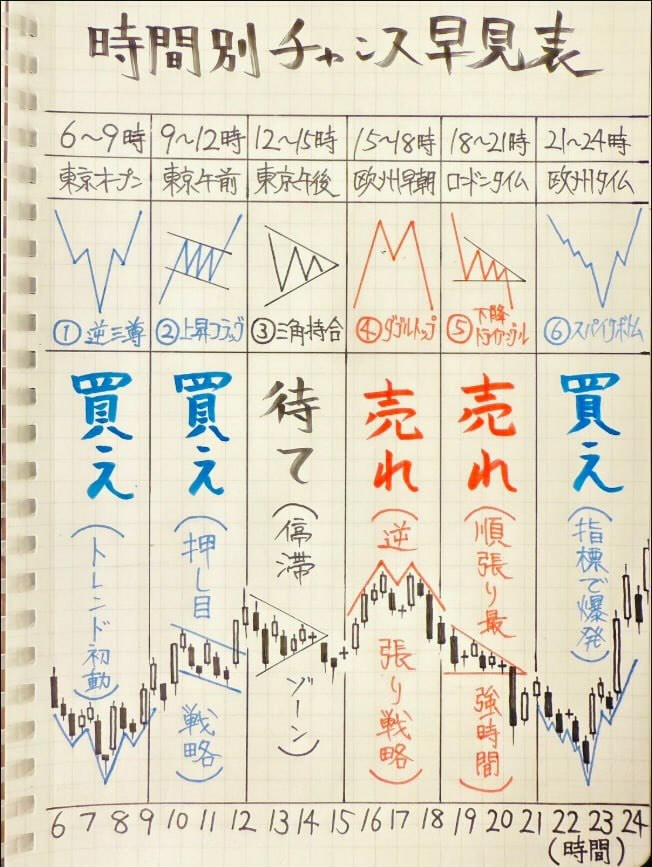 時間別チャンス早見表
6〜9時 9〜12時 12〜15時 15〜18時 18〜21時 21〜24時
東京オープン 東京午前 東京午後 欧州早朝 ロンドンタイム 欧州タイム
①逆三尊 ②上昇フラッグ ③三角持合 ④ダブルトップ ⑤下降トライアングル ⑥スパイクボトム
買え 買え 待て 売れ 売れ 買え
(トレンド初動)
(押し目戦略)
(停滞ゾーン)
(逆張り戦略)
(順張り最強時間)
(指標で爆発)
6 7 8 9 10 11 12 13 14 15 16 17 18 19 20 21 22 23 24
(時間)